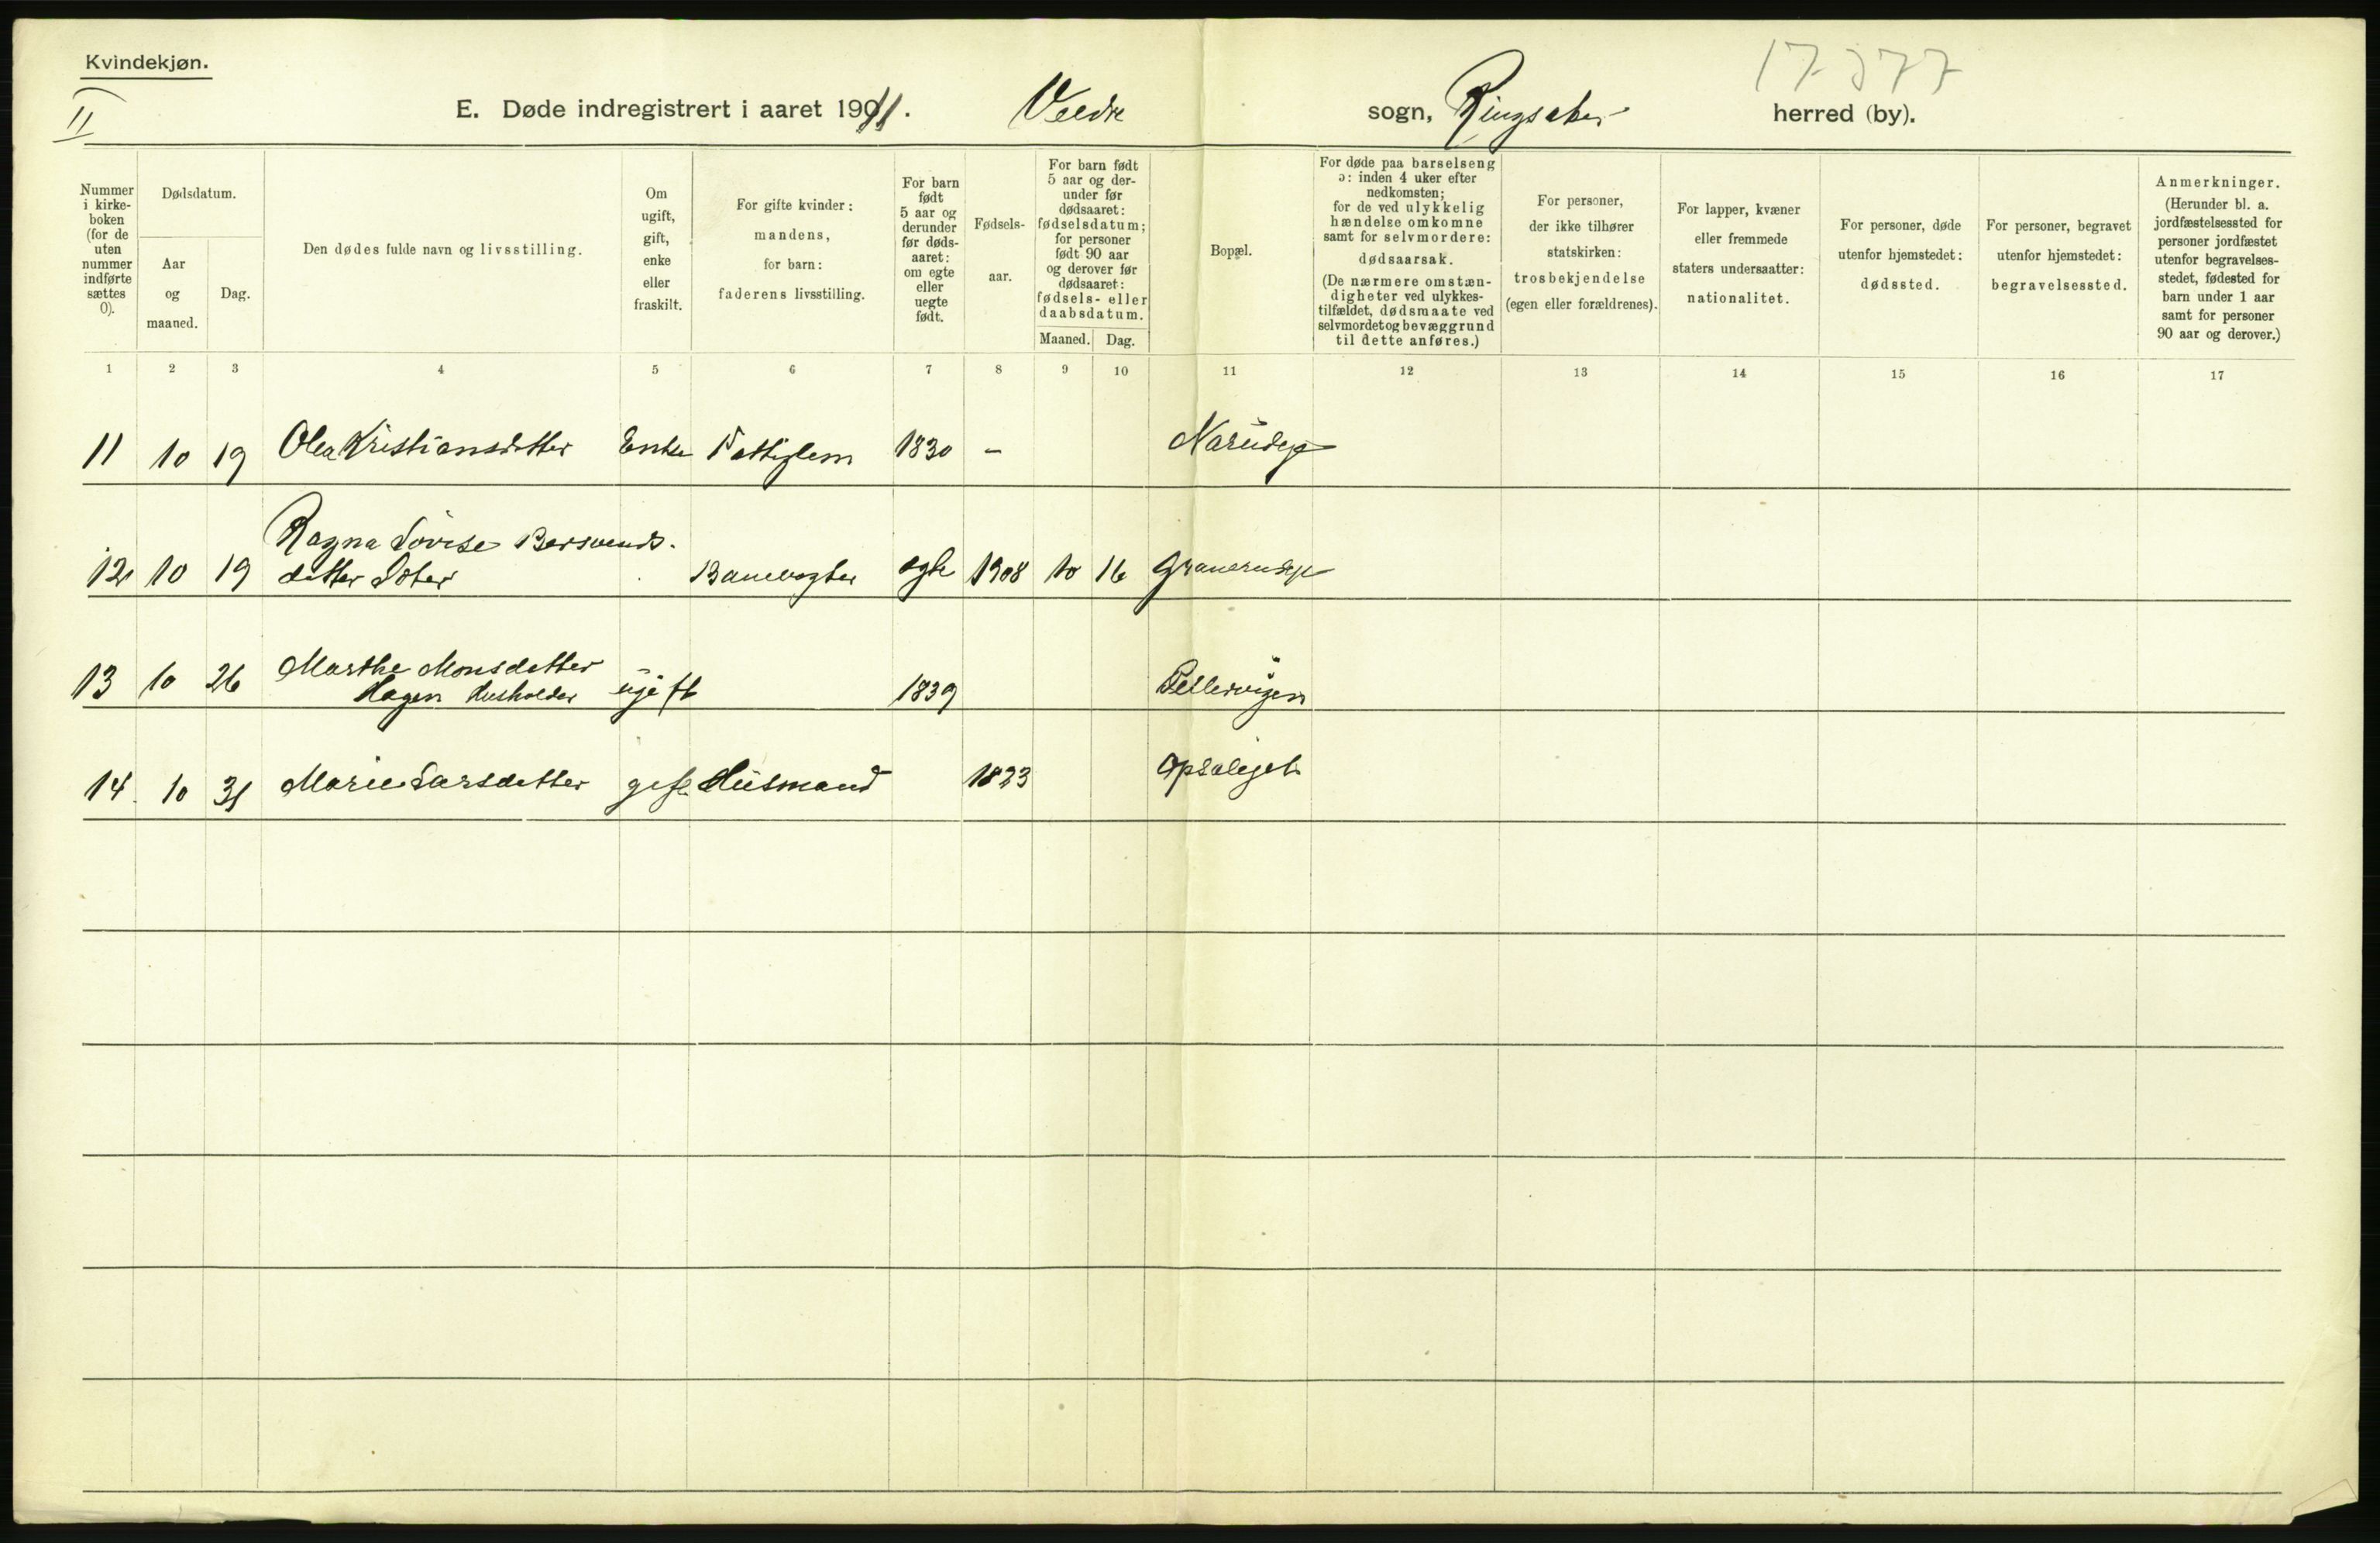 Kvindekjøn.
II
17377
E. Døde indregistrert i aaret 1911. Veldre sogn, Ringsaker herred (by).
Nummer i kirke-boken (for de uten nummer indførte sættes 0).
Dødsdatum.
Aar og maaned.
Dag.
Den dødes fulde navn og livsstilling.
Om ugift, gift, enke eller fraskilt.
For gifte kvinder: mandens, for barn: faderens livsstilling.
For barn født 5 aar og derunder før døds-aaret: om egte eller uegte født.
Fødsels-aar.
For barn født 5 aar og der-under før dødsaaret: fødselsdatum; for personer født 90 aar og derover før dødsaaret: fødsels- eller daabsdatum.
Maaned. Dag.
Bopæl.
For døde paa barselseng ɔ: inden 4 uker efter nedkomsten; for de ved ulykkelig hændelse omkomne samt for selvmordere: dødsaarsak. (De nærmere omstæn-digheter ved ulykkes-tilfældet, dødsmaate ved selvmordet og bevæggrund til dette anføres.)
For personer, der ikke tilhører statskirken: trosbekjendelse (egen eller forældrenes).
For lapper, kvæner eller fremmede staters undersaatter: nationalitet.
For personer, døde utenfor hjemstedet: dødssted.
For personer, begravet utenfor hjemstedet: begravelsessted.
Anmerkninger. (Herunder bl. a. jordfæstelsessted for personer jordfæstet utenfor begravelses-stedet, fødested for barn under 1 aar samt for personer 90 aar og derover.)
1 2 3 4 5 6 7 8 9 10 11 12 13 14 15 16 17
11 10 19 Olea Kristiansdatter Enke Fattiglem 1830 – Narudeje
Ragna Lovise Bersvends-
12 10 19 datter Banevogter egte 1908 10 16 Granerudeje
Marthe Monsdatter
13 10 26 Hagen Husholder ugift 1839
14 10 31 Marie Larsdatter gift Husmand 1823